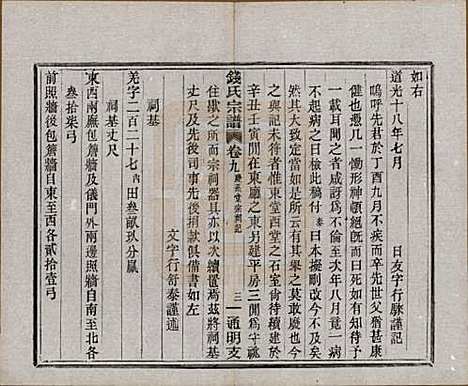 如右
道光十八年七月　日友字行脲謹記
嗚呼先君於丁酉九月不疾而卒先世父猶甚康
健也亦忽忽一慟形神頓懸既而步履維艱
一載耳聞之者咸訝爲不倫至次年八月竟一病
不起病之日檢此稿付泰曰本擬刪改今不及矣
然其大致當如是所云有其舉之莫敢廢也今
之與記未符者惟東堂西堂之石室尚待續建於
辛丑壬寅間在東廳之東另建平房三間爲守祠
錢氏宗譜　卷九　慶系堂宗祠記　三　通明支
住歇之所而宗祠器具亦以次續置焉茲將祠基
及先後司事先後捐款俱備
文字行舒泰謹述
祠基
羌字二百二十七內田叁畝玖分贏
祠基丈尺
東西兩廡包簷牆及儀門外南邊照牆自南至北各
叁拾柒弓
前照牆後包簷牆自東至西各貳拾壹弓